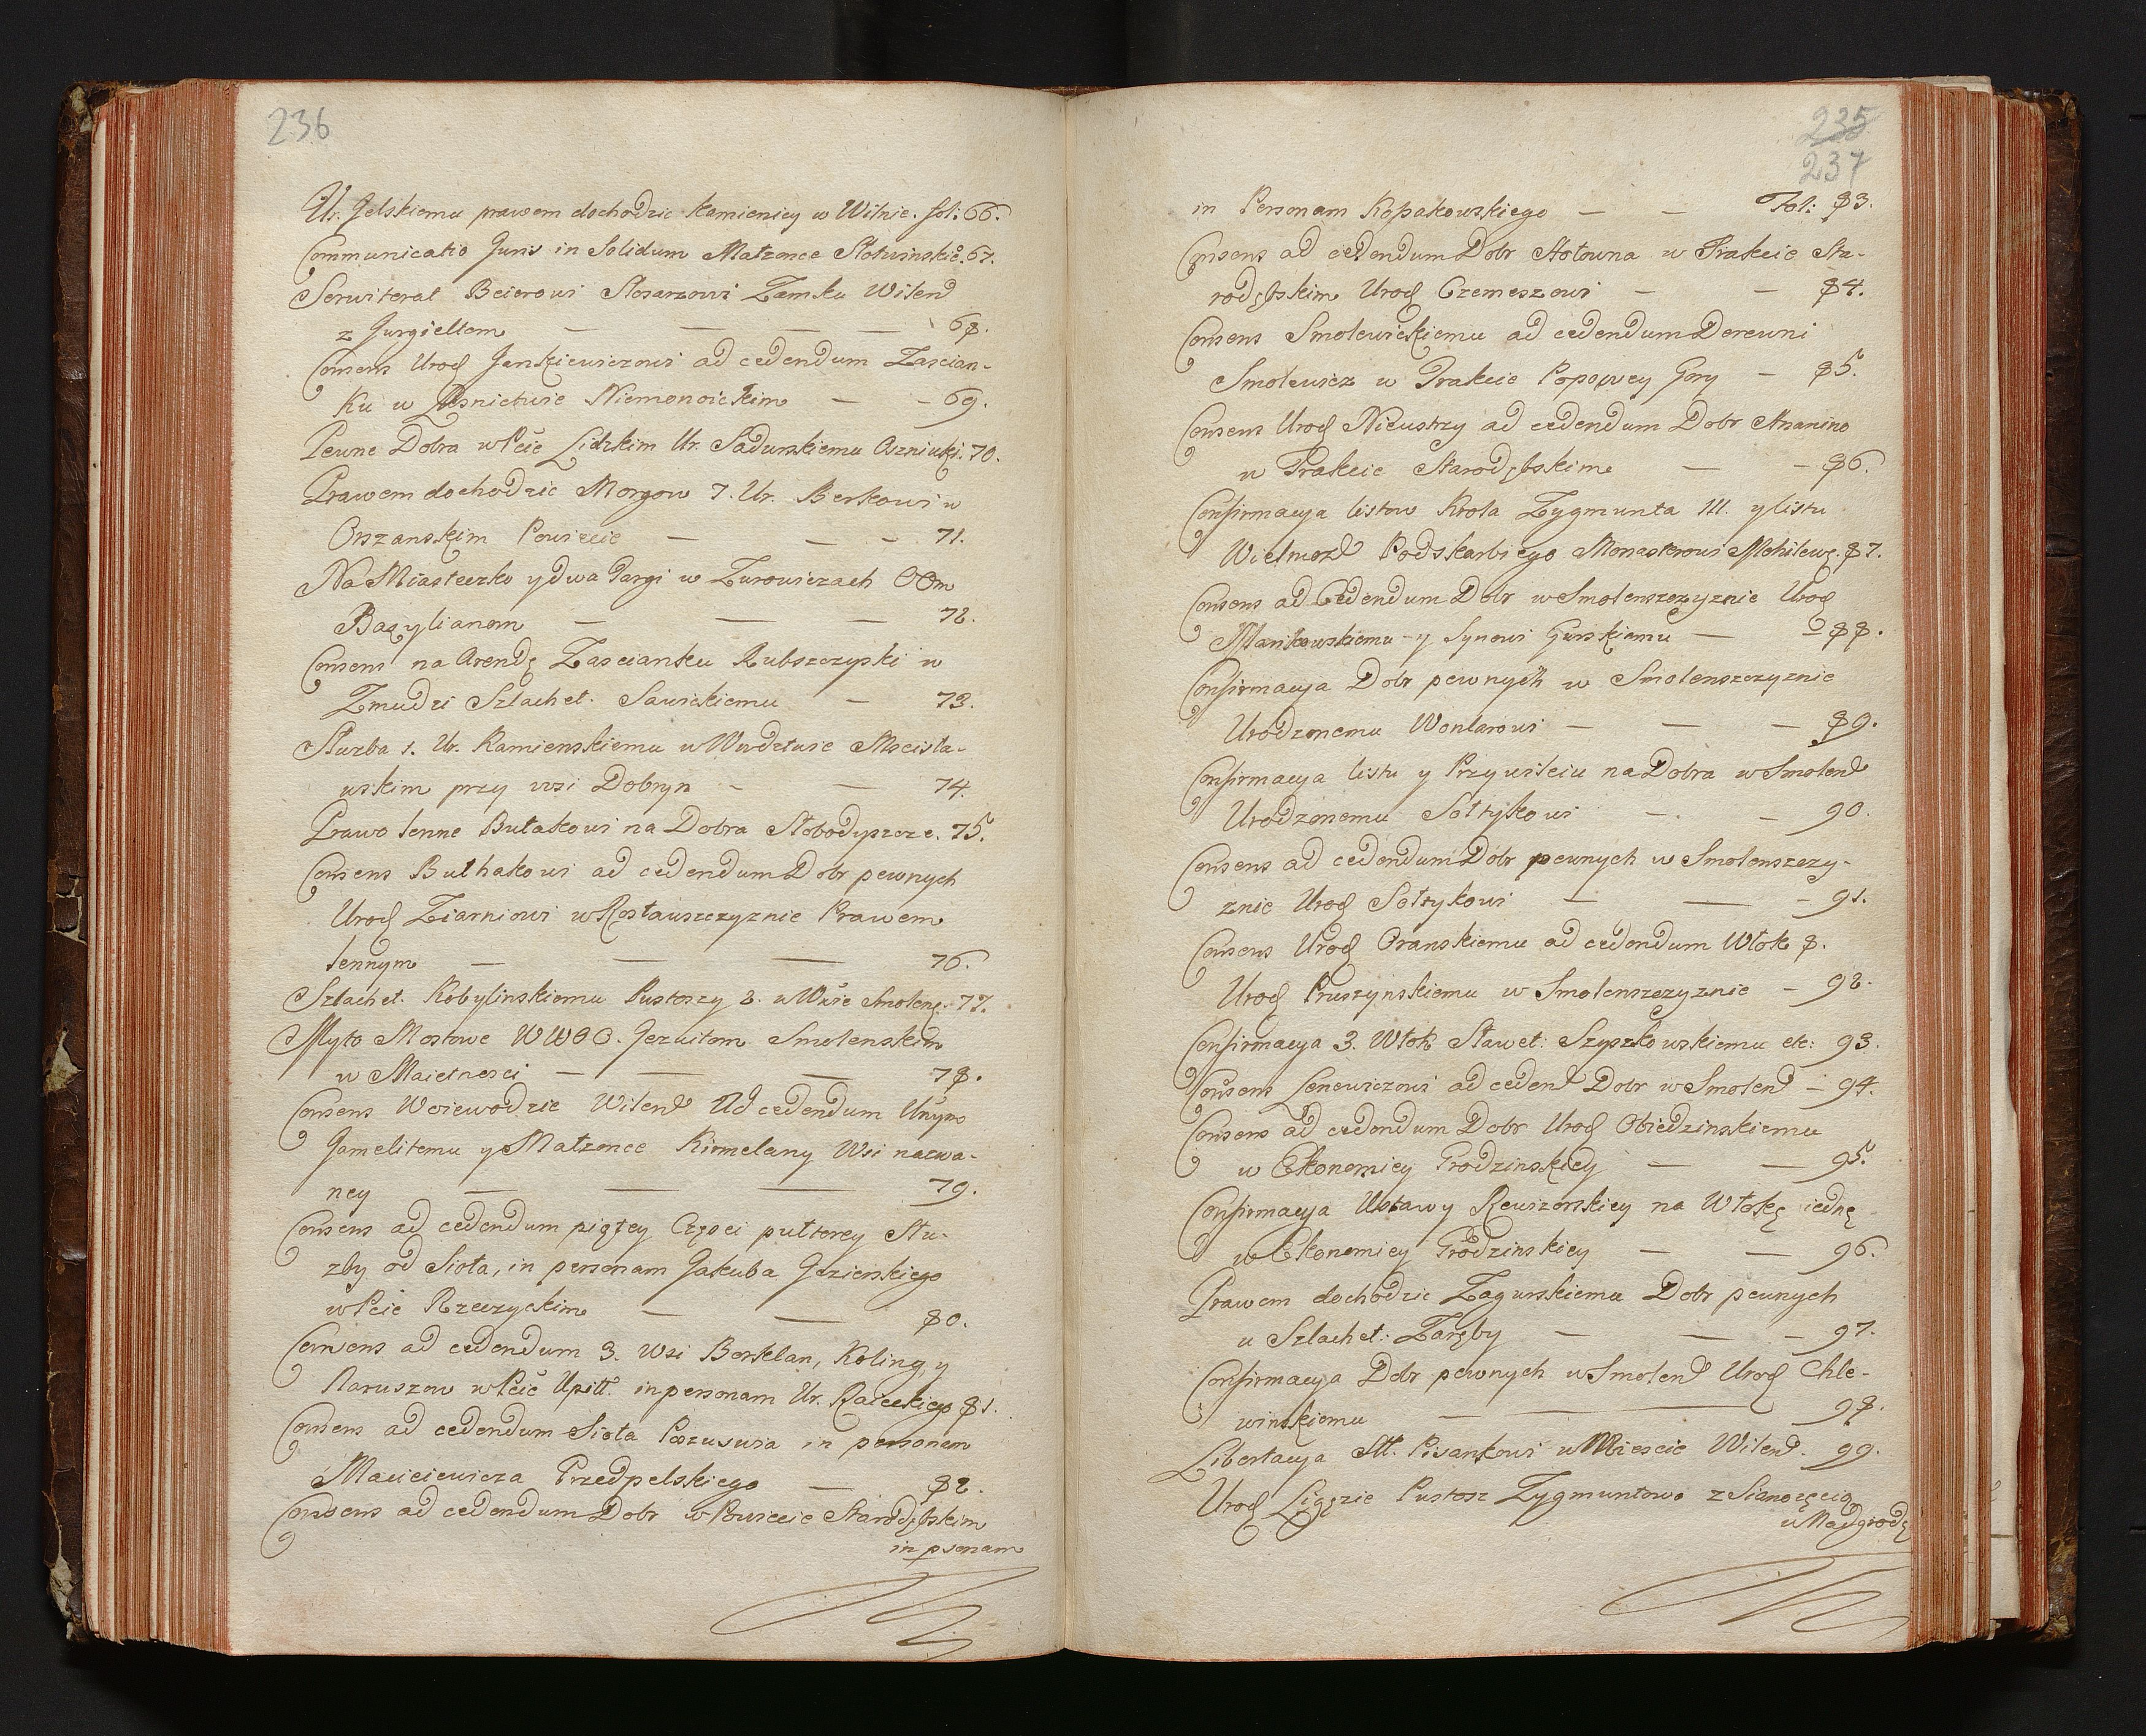 236
Ur. Jelskiemu prawem dochodzic Kamienicy w Wilnie. fol: 66.
Communicatio Juris in Solidum Małzonce Słotwinskie. 67.
Serwitorat Beierowi Slosarzowi Zamku Wilend
z Jurgieltem — — — — 68.
Consens Urod Jankiewiczowi ad cedendum Zascian-
ku w Lesnictwie Niemonoickim — - 69.
Pewne Dobra w Pcie Lidzkim Ur. Sadurskiemu 70.
Prawem dochodzic Morgow 7. Ur. Berkowi w
Orszanskim Powiecie — — - 71.
Na Miasteczko y dwa Targi w Zurowiczach OOm
Bazylianom — — — 72.
Consens na Arendę Zascianku Rubszczyski w
Zmudzi Szlachet. Sawickiemu — 73.
Służba 1. Ur. Kamienskiemu w Wwdztwie Mscisła-
wskim przy wsi Dobryn - — 74.
Prawo lenne Bułakowi na Dobra Słobodyszcze. 75.
Consens Bulhakowi ad cedendum Dobr pewnych
Urod Ziarniowi w Rosławszczyznie Prawem
lennym — — — 76.
Szlachet. Kobylinskiemu Pustoszy 2. w Wwie Smolenę. 77.
Myto Mostowe WWOO. Jezuitom Smolenskim
w Maietnosci — — — 78.
Consens Woiewodzie Wilend Ad cedendum Unym
Gamelitemu y Małzonce Kirmelany Wsi nazwa-
ney — — — 79.
Consens ad cedendum piątey Części pułtorey Słu-
zby od Sioła, in personam Jakuba Jezierskiego
w Pcie Rzeczyckim — — 80.
Consens ad cedendum 3. Wsi Berklan, Koling, y
Naruszow w Pcie Upitt. in personam Ur. Raieckiego 81.
Consens ad cedendum Sioła Poszuswia in personam
Macieiewicza Przedpelskiego — 82.
Consens ad cedendum Dobr w Powiecie Starodębskim
in psonam
235
237
in Personam Kopakowskiego — — Fol: 83.
Consens ad cedendum Dobr Hołowna w Trakcie Sta-
rodębskim Urod Czemeszowi — — 84.
Consens Smolewickiemu ad cedendum Derewni
Smolewicz w Trakcie Popowey Gory — 85.
Consens Urod Nieustrzy ad cedendum Dobr Ananino
w Trakcie Starodębskim — - 86.
Confirmacya listow Krola Zygmunta III. y listu
Wielmozd Podskarbiego Monasterowi Mohilewę. 87.
Consens ad Cedendum Dobr w Smolenszczyznie Urod
Mankowskiemu y Synowi Gurskiemu — - 88.
Confirmacya Dobr pewnych w Smolenszczyznie
Urodzonemu Wonlarowi — — — 89.
Confirmacya listu y Przywileiu na Dobra w Smolend
Urodzonemu Sołtykowi — — 90.
Consens ad cedendum Dobr pewnych w Smolenszczy-
znie Urod Sołtykowi — — - 91.
Consens Urod Oranskiemu ad cedendum Włok 8.
Urod Pruszynskiemu w Smolenszczyznie - 92.
Confirmacya 3. Włok Sławet: Szyszkowskiemu etc: 93.
Consens Lenowiczowi ad cedend Dobr w Smolend - 94.
Consens ad cedendum Dobr Urod Obiedzinskiemu
w Ekonomiey Grodzinskiey — — 95.
Confirmacya Ustawy Rewizorskiey na Włokę iednę
w Ekonomiey Grodzinskiey — — 96.
Prawem dochodzic Zagurskiemu Dobr pewnych
u Szlachet: Zaręby — — - 97.
Confirmacya Dobr pewnych w Smolend Urod Chle-
winskiemu — — — 98.
Libertacya Sł. Pisankowi w Miescie Wilend. 99.
Urod Ligęzie Pustosz Zygmuntowo z Sianozęcią
w Nadgrodę